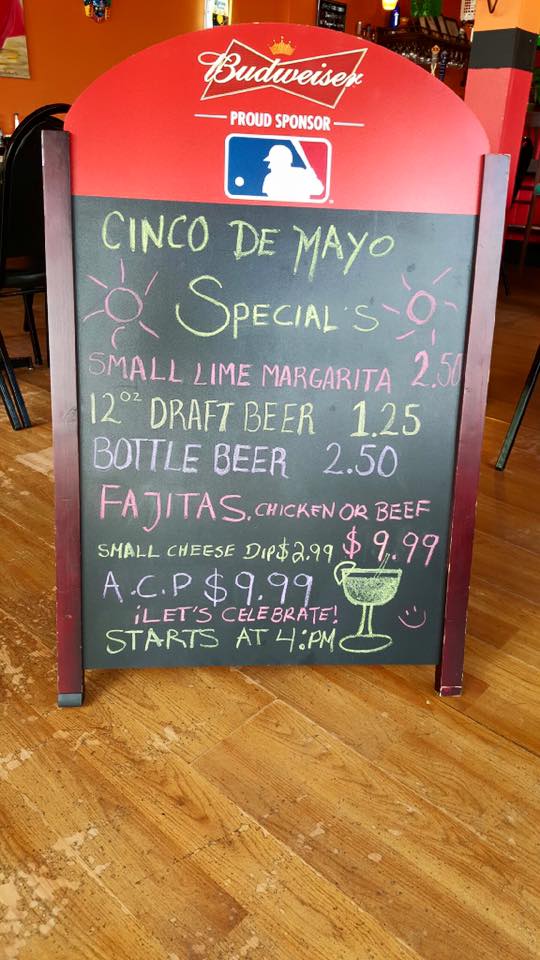 Budweiser
PROUD SPONSOR
CINCO DE MAYO
SPECIAL'S
SMALL LIME MARGARITA 2.50
12oz DRAFT BEER 1.25
BOTTLE BEER 2.50
FAJITAS. CHICKEN OR BEEF
SMALL CHEESE DIP $2.99 $9.99
A.C.P $9.99
¡LET'S CELEBRATE!
STARTS AT 4:PM